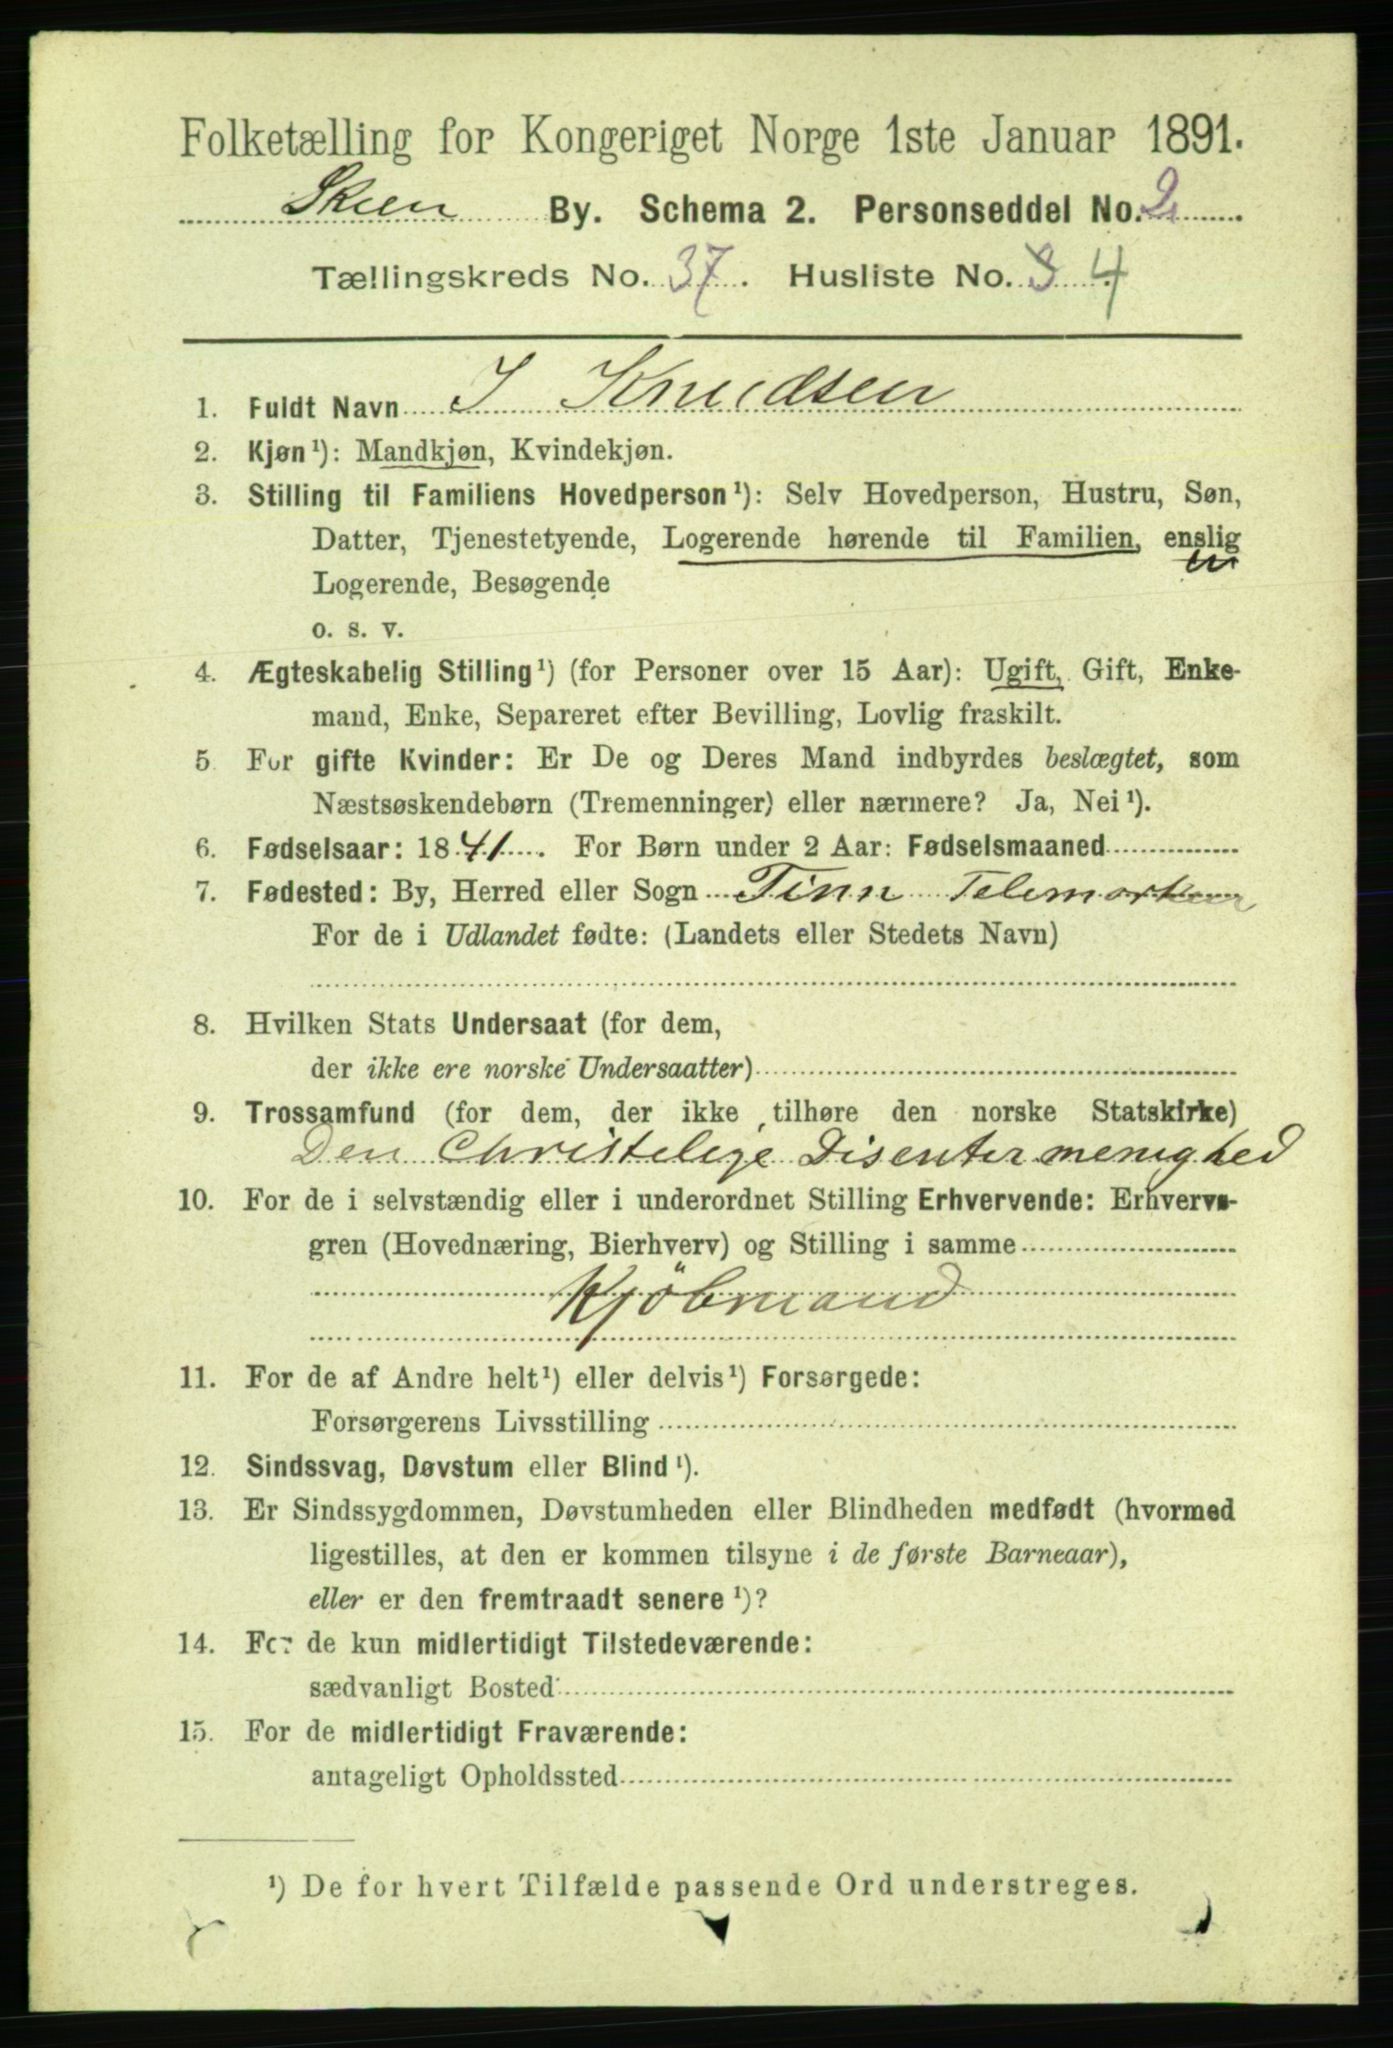 Folketælling for Kongeriget Norge 1ste Januar 1891.
Skien By. Schema 2. Personseddel No. 2
Tællingskreds No. 37. Husliste No. 3 4
1. Fuldt Navn I Knudsen
2. Kjøn¹): Mandkjøn, Kvindekjøn.
3. Stilling til Familiens Hovedperson¹): Selv Hovedperson, Hustru, Søn,
Datter, Tjenestetyende, Logerende hørende til Familien, enslig
Logerende, Besøgende
o. s. v.
4. Ægteskabelig Stilling¹) (for Personer over 15 Aar): Ugift, Gift, Enke-
mand, Enke, Separeret efter Bevilling, Lovlig fraskilt.
5. For gifte Kvinder: Er De og Deres Mand indbyrdes beslægtet, som
Næstsøskendebørn (Tremenninger) eller nærmere? Ja, Nei¹).
6. Fødselsaar: 1841. For Børn under 2 Aar: Fødselsmaaned
7. Fødested: By, Herred eller Sogn Tinn Telemarken
For de i Udlandet fødte: (Landets eller Stedets Navn)
8. Hvilken Stats Undersaat (for dem,
der ikke ere norske Undersaatter)
9. Trossamfund (for dem, der ikke tilhøre den norske Statskirke)
Den Christelige Disentermenighed
10. For de i selvstændig eller i underordnet Stilling Erhvervende: Erhvervs-
gren (Hovednæring, Bierhverv) og Stilling i samme
Kjöbmand
11. For de af Andre helt¹) eller delvis¹) Forsørgede:
Forsørgerens Livsstilling
12. Sindssvag, Døvstum eller Blind¹).
13. Er Sindssygdommen, Døvstumheden eller Blindheden medfødt (hvormed
ligestilles, at den er kommen tilsyne i de første Barneaar),
eller er den fremtraadt senere¹)?
14. For de kun midlertidigt Tilstedeværende:
sædvanligt Bosted
15. For de midlertidigt Fraværende:
antageligt Opholdssted
¹) De for hvert Tilfælde passende Ord understreges.